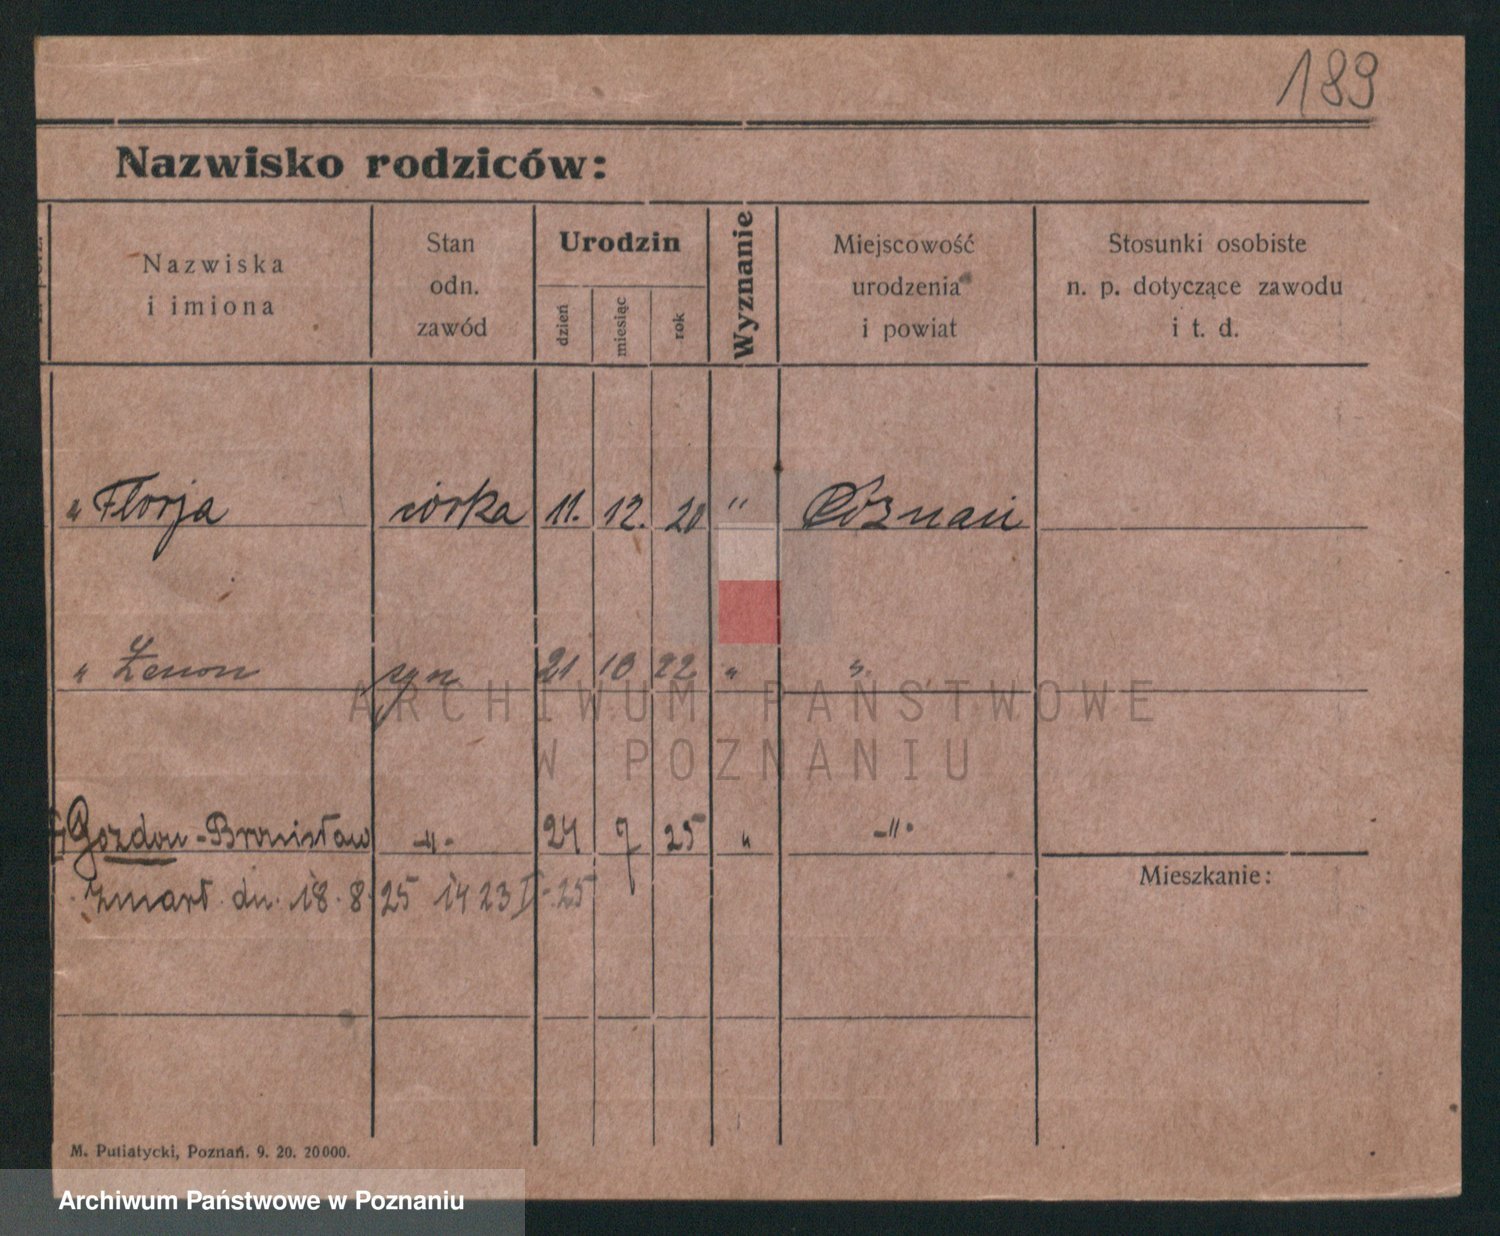 189
Nazwisko rodziców:
Nazwiska
i imiona
Stan
odn.
zawód
Urodzin
dzień
miesiąc
rok
Wyznanie
Miejscowość
urodzenia
i powiat
Stosunki osobiste
n. p. dotyczące zawodu
i t. d.
" Florja córka 11. 12. 20 " Poznań
" Zenon syn 21 10 22 " "
Gozdow - Bronisław -"- 24 7 25 " -"-
zmarł dn. 18. 8. 25 1423 I - 25
Mieszkanie:
ARCHIWUM PAŃSTWOWE
W POZNANIU
M. Putiatycki, Poznań. 9. 20. 20000.
Archiwum Państwowe w Poznaniu